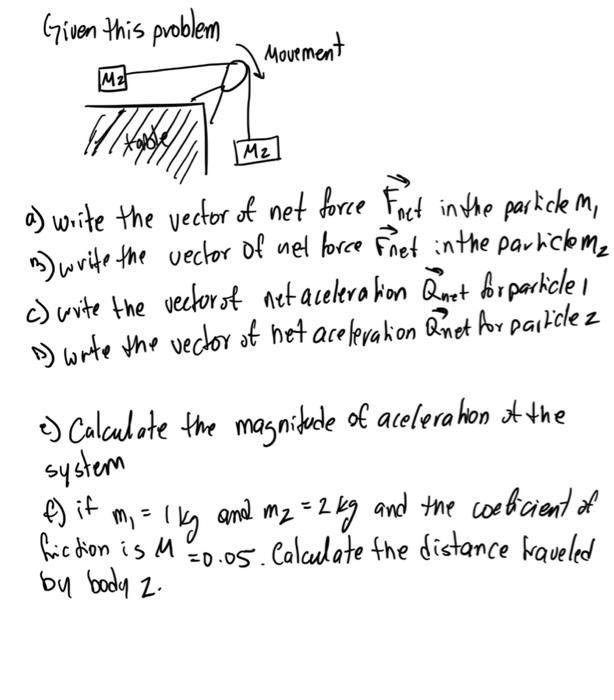 Given this problem
Movement
M2
table
M2
a) write the vector of net force Fnet in the particle m1
B) write the vector of net force Fnet in the particle m2
c) write the vector of net aceleration anet for particle 1
D) write the vector of net aceleration anet for particle 2
e) Calculate the magnitude of aceleration of the
system
f) if m1 = 1 kg and m2 = 2 kg and the coeficient of
friction is M =0.05. Calculate the distance traveled
by body 2.